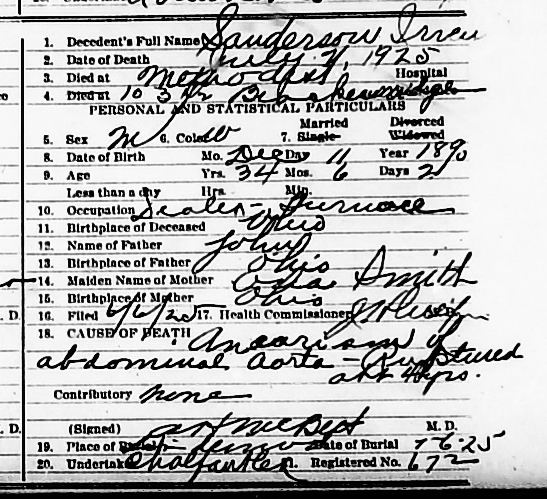 1. Decedent's Full Name Sanderson Irven
2. Date of Death July 1925
3. Died at Methodist Hospital
4. Died at 10 Breckenridge
PERSONAL AND STATISTICAL PARTICULARS
Married Divorced
5. Sex M 6. Color W 7. Single Widowed
8. Date of Birth Mo. Dec Day 11 Year 1890
9. Age Yrs. 34 Mos. 6 Days 2
Less than a day Hrs. Min.
10. Occupation Dealer - Furnace
11. Birthplace of Deceased Ohio
12. Name of Father John
13. Birthplace of Father Ohio
14. Maiden Name of Mother Smith
15. Birthplace of Mother Ohio
16. Filed 17. Health Commissioner
18. CAUSE OF DEATH Aneurism of
abdominal aorta - Ruptured
Contributory none
(Signed) M. D.
19. Place of Burial Date of Burial 7-6-25
20. Undertaker 21. Registered No. 672